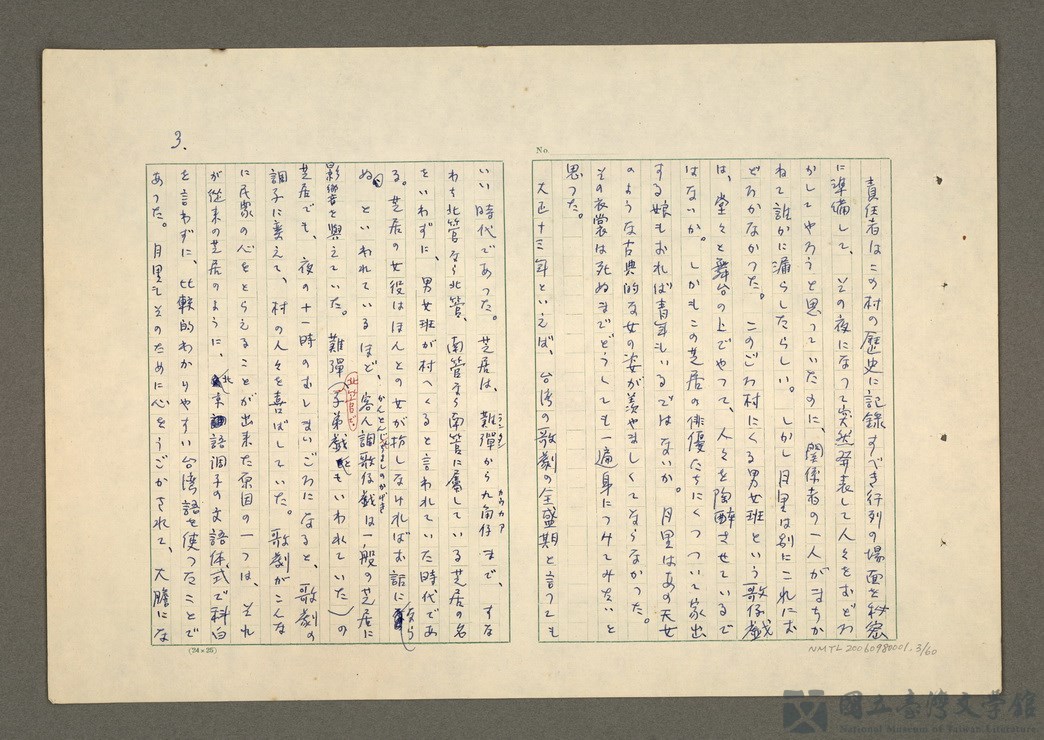 No
責任者はこの村の歴史に記録すべき行列の場面を秘密
に準備して、その夜になつて突然発表して人々をおどろ
かしてやろうと思つていたのに、関係者の一人がまちか
ねて誰かに漏らしたらしい。しかし月里は別にこれにお
どろかなかつた。このごろ村にくる男女班という歌仔戯
は、堂々と舞台の上でやつて、人々を陶酔させているで
はないか。しかもこの芝居の俳優たちにくつついて家出
する娘もおれば青年もいるではないか。月里はあの天女
のような古典的な女の姿が羨やましくてならなかつた。
その衣裳は死ぬまでどうしても一遍身につけてみたいと
思つた。
大正十三年といえば、台湾の歌劇の全盛期と言つても
いい時代であつた。芝居は、難彈から九角仔まで、すな
ランタン
カウカア
わち北管なら北管、南管なら南管に屬している芝居の名
といわずに、男女班が村へくると言われていた時代であ
る。芝居の女役はほんとの女が扮しなければお話になら
ぬ、といわれているほど、客人調歌仔戯は一般の芝居に
影響を與えていた。難彈(子弟戯ともいわれていた)の
北管は
芝居でも、夜の十一時のおしまいごろになると、歌劇の
調子に変えて、村の人々を喜ばしていた。歌劇がこんな
に民衆の心をとらえることが出来た原因の一つは、それ
が従来の芝居のように、北京語調子の文語体式で科白
を言わずに、比較的わかりやすい台湾語を使つたことで
あつた。月里もそのために心をうごかされて、大膽にな
3.
(24×25)
NMTL20060980001.3/60
國立臺灣文學館
National Museum of Taiwan Literature